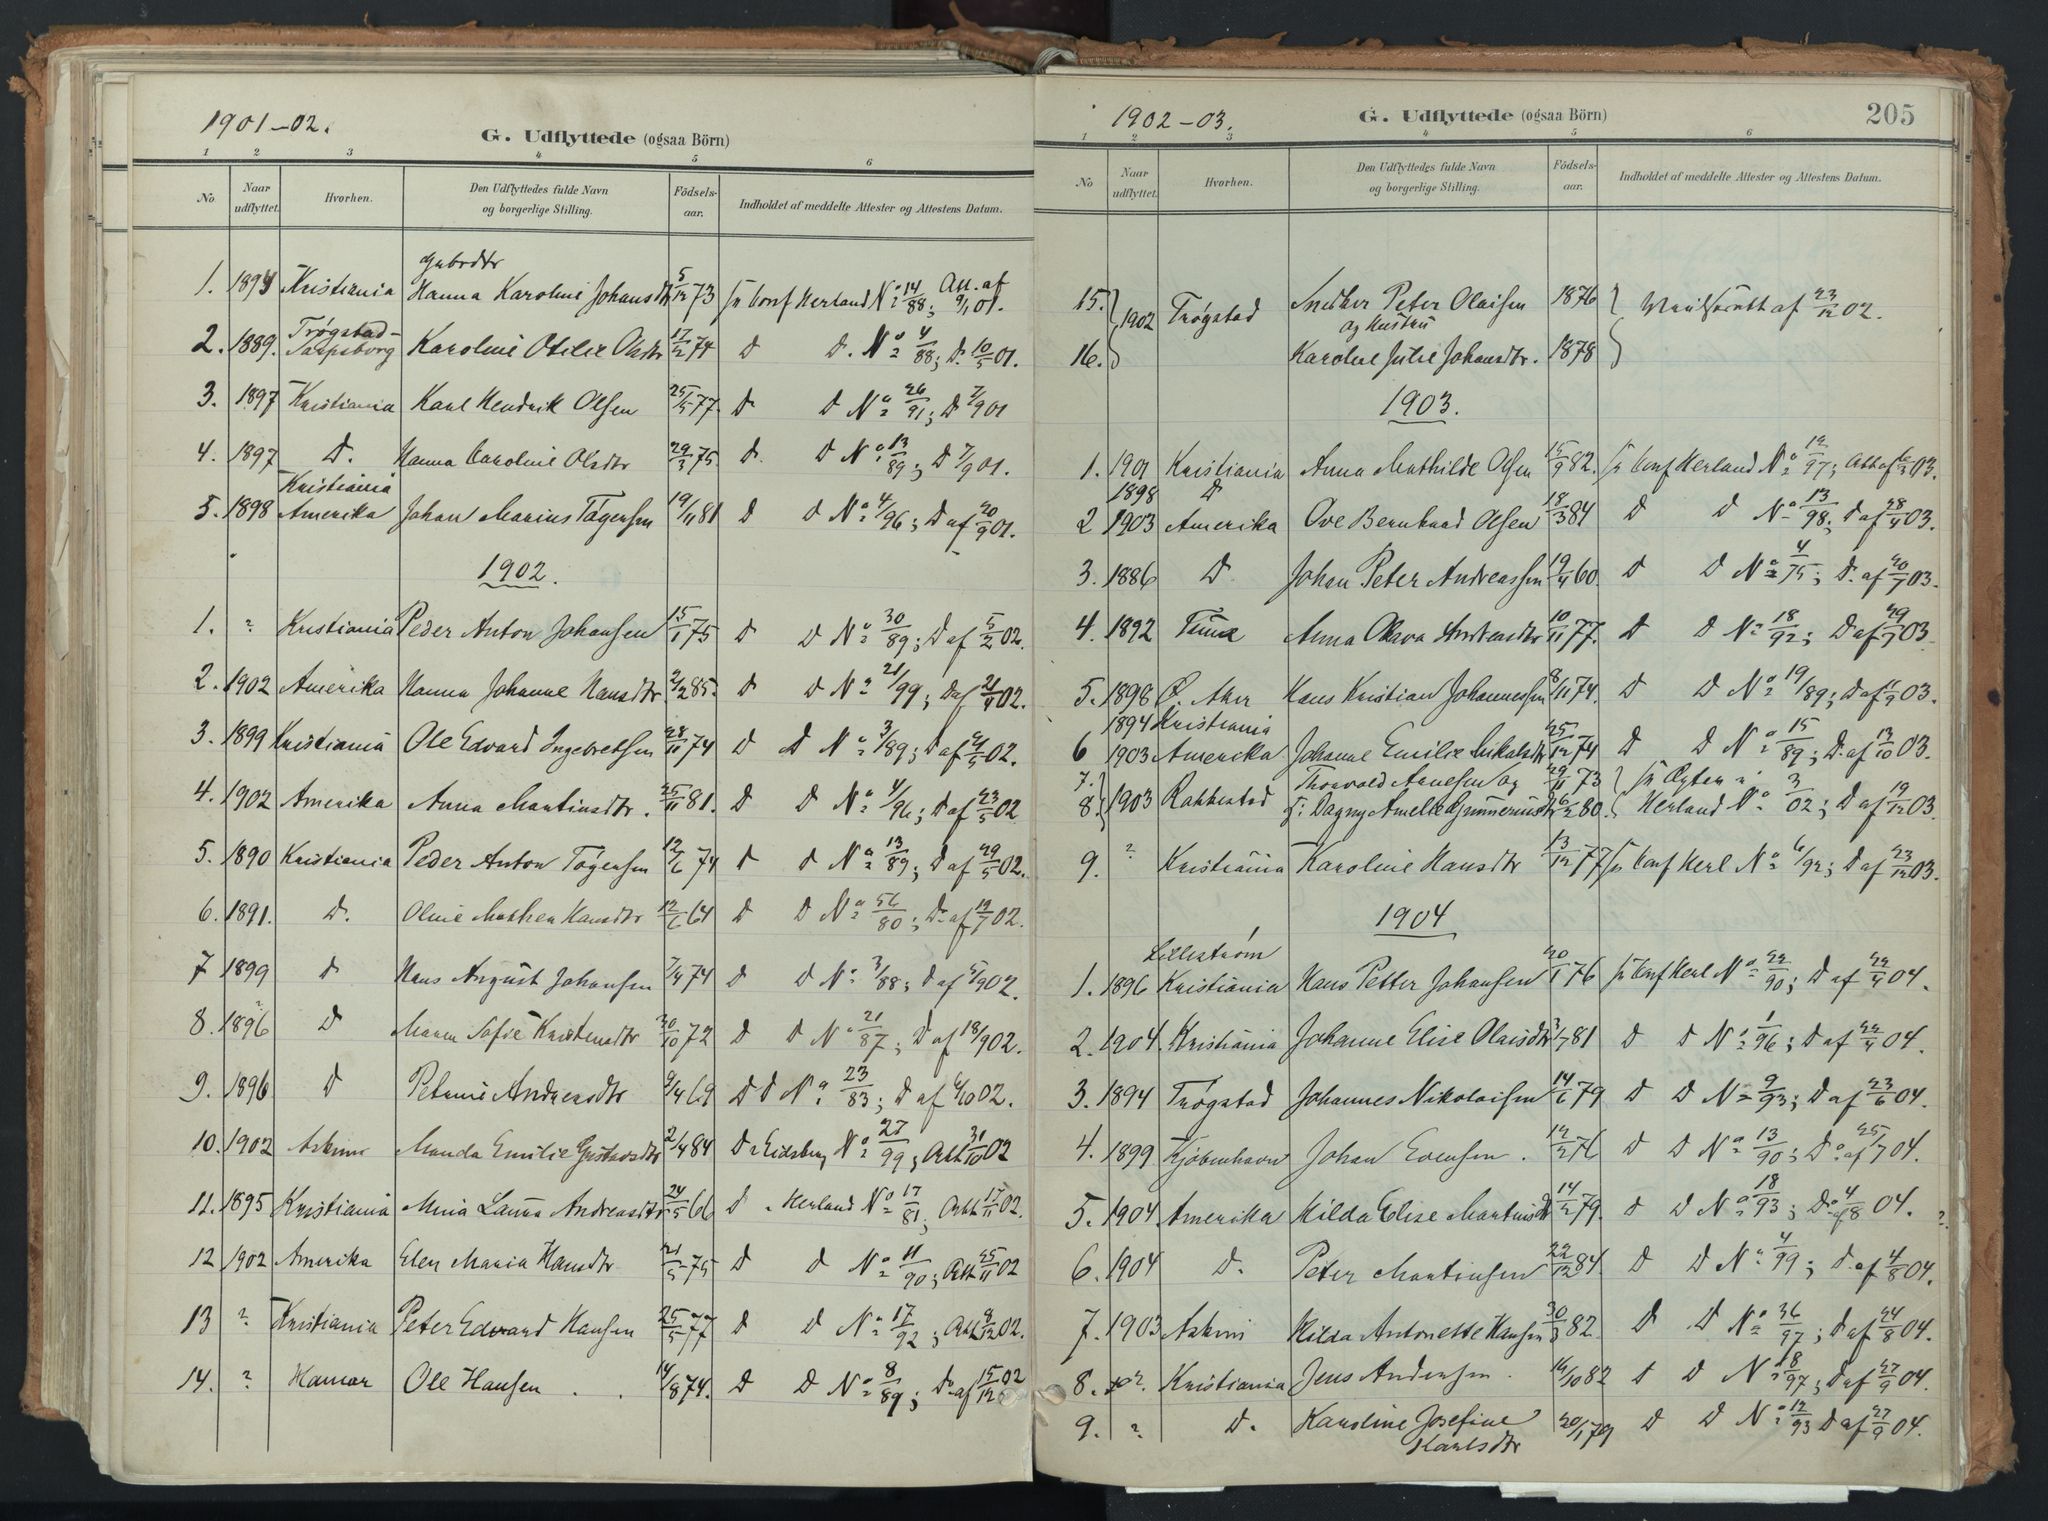 1901-02.
G. Udflyttede (ogsaa Börn)
1 2 3 4 5 6
No Naar udflyttet. Hvorhen. Den Udflyttedes fulde Navn og borgerlige Stilling. Födsels-aar. Indholdet af meddelte Attester og Attestens Datum.
1. 1894 Kristiania Hanna Karoline Johansdtr 5/12 73 Herland No 14/88; Att. af 9/1 01.
2. 1889. Trøgstad- Sarpsborg Karoline Otilie Olsdtr 17/2 74 D D. No 4/88; D. 10/5 01.
3. 1897 Kristiania Karl Hendrik Olsen 25/5 77. D D No 26/91; D 7/9 01
4. 1897 D. Hanna Caroline Olsdtr 29/3 75. D. D No 13/89; D 7/9 01.
5. 1898 Kristiania Amerika Johan Marius Tøgersen 19/11 81 D D No 4/96; D af 20/9 01.
1902.
1. ? Kristiania Peder Anton Johansen 15/1 75 D D No 30/89; D af 5/2 02.
2. 1902 Amerika Hanna Johanne Hansdtr. 2/2 85. D D No 21/99; D af 21/4 02.
3. 1899 Kristiania Ole Edvard Ingebretsen 28/11 74 D D No 3/89; D af 02.
4. 1902 Amerika Anna Martinsdtr. 25/11 81. D D No 4/96; D af 23/5 02
5. 1890 Kristiania Peder Anton Tøgersen 12/6 74 D D No 13/89; D af 29/5 02.
6. 1891. D. Oline Hansdtr 12/6 64 D D No 56/80; D. af 19/7 02.
7 1899 D Hans August Johansen 7/4 74 D D No 3/88; D af 02.
8. 1896 ? D Maren Sofie Kristensdtr 30/10 72 D D No 21/87; D af 18/9 02.
9. 1896 D Petrine Andreasdtr 9/4 69 D D No 23/83; D af 02.
10. 1902 Askim Manda Emilie Gustavsdtr 2/4 84 D Eidsberg No 27/99; Att 31/10 02
11. 1895 Kristiania Mina Laura Andreasdtr 24/5 66 D Herland No 17/81; Att 17/11 02.
12 1902 Amerika Elen Maria Hansdtr 21/5 75 D D No 11/90; Att 25/11 02
13 ? Kristiania Peter Edvard Hansen 25/5 77 D D No 17/92; Att 9/12 02.
14. ? Hamar Ole Hansen 14/8 74. D D No 8/89; D. af 15/12 02
1902-03.
G. Udflyttede (ogsaa Börn)
205
1 2 3 4 5 6
No Naar udflyttet. Hvorhen. Den Udflyttedes fulde Navn og borgerlige Stilling. Födsels-aar. Indholdet af meddelte Attester og Attestens Datum.
15. 1902 Trøgstad Snedker Peter Olaisen 1876 af 23/12 02.
og Hustru
16. Karoline Julie Johansdtr. 1878
1903.
1. 1901 Kristiania Anna Mathilde Olsen 15/9 82. Herland No 12/97; Att af 03.
1898 D
2 1903 Amerika Ove Bernhard Olsen 18/3 84 D D No 13/98; D af 28/4 03.
3. 1886 D Johan Peter Andreassen 19/4 60. D D No 4/75; D. af 20/7 03.
4. 1892 Anna Olava Andreasdtr 10/11 77. D D No 18/92; D af 29/7 03.
5. 1898 Ø. Aker Hans Kristian Johannessen 8/11 74. D D No 19/89; D af 03.
1894 Kristiania
6 1903 Amerika Johanne Emilie 25/12 74 D D No 15/89; D. af 13/10 03.
7. 1903 Rakkestad Thorvald Arnesen og 29/11 73
8. Dagny Amelle Gunneriusdtr 80. Herland No 3/02; D af 19/12 03.
9. ? Kristiania Karoline Hansdtr 13/12 77 Herl No 6/92; D af 23/12 03.
1904
Lillestrøm
1. 1896 Kristiania Hans Petter Johansen 20/1 76 Herl No 22/90; D af 22/4 04.
2. 1904. Kristiania Johanne Elise Olaisdtr 81 D D No 1/96; D af 22/4 04.
3. 1894 Trøgstad Johannes Nikolaisen 14/6 79 D D No 9/93; D af 23/6 04.
4. 1899 Kjøbenhavn Johan Evensen. 12/2 76 D D No 13/90; D. af 25/7 04.
5. 1904 Amerika Hilda Elise Martinsdtr 14/2 79. D D No 18/93; D. af 4/8 04.
6. 1904 D. Peter Martinsen 22/12 84. D D No 4/99; D. af 4/8 04.
7. 1903 Askim Hilda Antonette Hansen 30/3 82. D D No 36/97; D af 24/8 04.
8. ? Kristiania Jens Andersen. 16/10 82 D D No 18/97; D af 27/9 04.
9. ? D. Karoline Josefine Karlsdtr 20/1 79 D D No 12/93 D af 27/9 04.